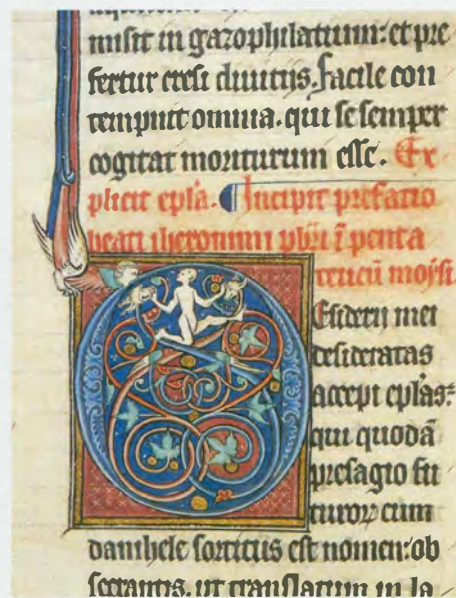 misit in gazophilatium: et pre
fertur cresi diuitijs. facile con
tempnit omnia. qui se semper
cogitat moriturum esse. Ex
plicit epl'a. Incipit prefatio
beati iheronimi pbri ī penta
teucū moysi.
Esiderij mei
desideratas
accepi epl'as:
qui quodā
presagio fu
turoꝝ cum
danihele sortitus est nomen: ob
secrantis. ut translatum in la